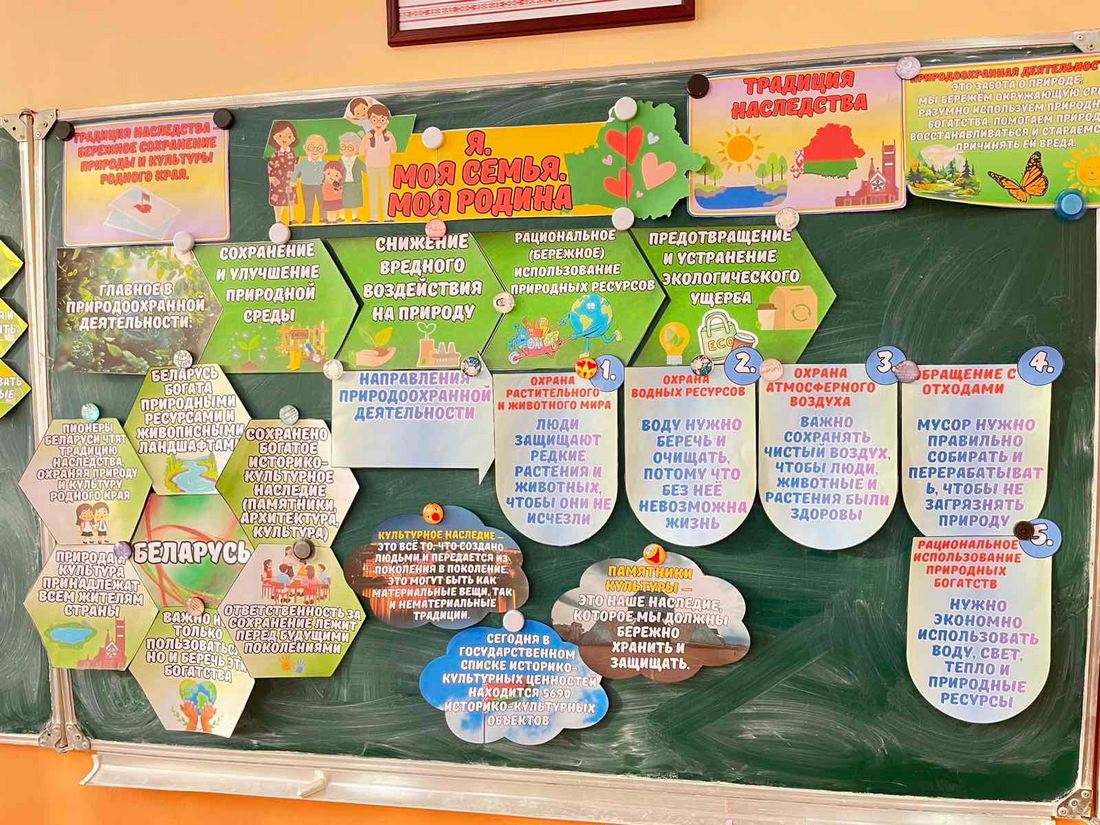 ТРАДИЦИЯ НАСЛЕДСТВА -
БЕРЕЖНОЕ СОХРАНЕНИЕ
ПРИРОДЫ И КУЛЬТУРЫ
РОДНОГО КРАЯ.
Я.
МОЯ СЕМЬЯ.
МОЯ РОДИНА
ТРАДИЦИЯ
НАСЛЕДСТВА
ПРИРОДООХРАННАЯ ДЕЯТЕЛЬНОСТЬ
ЭТО ЗАБОТА О ПРИРОДЕ.
МЫ БЕРЕЖЁМ ОКРУЖАЮЩУЮ
РАЗУМНО ИСПОЛЬЗУЕМ
БОГАТСТВА, ПОМОГАЕМ
ВОССТАНАВЛИВАТЬСЯ И
ПРИЧИНЯТЬ ЕЙ ВРЕДА.
ГЛАВНОЕ В
ПРИРОДООХРАННОЙ
ДЕЯТЕЛЬНОСТИ:
СОХРАНЕНИЕ
И УЛУЧШЕНИЕ
ПРИРОДНОЙ
СРЕДЫ
СНИЖЕНИЕ
ВРЕДНОГО
ВОЗДЕЙСТВИЯ
НА ПРИРОДУ
РАЦИОНАЛЬНОЕ
(БЕРЕЖНОЕ)
ИСПОЛЬЗОВАНИЕ
ПРИРОДНЫХ РЕСУРСОВ
ПРЕДОТВРАЩЕНИЕ
И УСТРАНЕНИЕ
ЭКОЛОГИЧЕСКОГО
УЩЕРБА
ECO
БЕЛАРУСЬ
БОГАТА
ПРИРОДНЫМИ
РЕСУРСАМИ И
ЖИВОПИСНЫМИ
ЛАНДШАФТАМИ
ПИОНЕРЫ
БЕЛАРУСИ ЧТЯТ
ТРАДИЦИЮ
НАСЛЕДСТВА,
ОХРАНЯЯ ПРИРОДУ
И КУЛЬТУРУ
РОДНОГО КРАЯ
СОХРАНЕНО
БОГАТОЕ
ИСТОРИКО-
КУЛЬТУРНОЕ
НАСЛЕДИЕ
(ПАМЯТНИКИ,
АРХИТЕКТУРА,
КУЛЬТУРА)
БЕЛАРУСЬ
ПРИРОДА И
КУЛЬТУРА
ПРИНАДЛЕЖАТ
ВСЕМ ЖИТЕЛЯМ
СТРАНЫ
ВАЖНО НЕ
ТОЛЬКО
ПОЛЬЗОВАТЬСЯ,
НО И БЕРЕЧЬ ЭТИ
БОГАТСТВА
ОТВЕТСТВЕННОСТЬ ЗА
СОХРАНЕНИЕ ЛЕЖИТ
ПЕРЕД БУДУЩИМИ
ПОКОЛЕНИЯМИ
НАПРАВЛЕНИЯ
ПРИРОДООХРАННОЙ
ДЕЯТЕЛЬНОСТИ
1.
ОХРАНА
РАСТИТЕЛЬНОГО
И ЖИВОТНОГО МИРА
ЛЮДИ
ЗАЩИЩАЮТ
РЕДКИЕ
РАСТЕНИЯ И
ЖИВОТНЫХ,
ЧТОБЫ ОНИ НЕ
ИСЧЕЗЛИ
2.
ОХРАНА
ВОДНЫХ РЕСУРСОВ
ВОДУ НУЖНО
БЕРЕЧЬ И
ОЧИЩАТЬ,
ПОТОМУ ЧТО
БЕЗ НЕЁ
НЕВОЗМОЖНА
ЖИЗНЬ
3.
ОХРАНА
АТМОСФЕРНОГО
ВОЗДУХА
ВАЖНО
СОХРАНЯТЬ
ЧИСТЫЙ ВОЗДУХ,
ЧТОБЫ ЛЮДИ,
ЖИВОТНЫЕ И
РАСТЕНИЯ БЫЛИ
ЗДОРОВЫ
4.
ОБРАЩЕНИЕ С
ОТХОДАМИ
МУСОР НУЖНО
ПРАВИЛЬНО
СОБИРАТЬ И
ПЕРЕРАБАТЫВАТ
Ь, ЧТОБЫ НЕ
ЗАГРЯЗНЯТЬ
ПРИРОДУ
5.
РАЦИОНАЛЬНОЕ
ИСПОЛЬЗОВАНИЕ
ПРИРОДНЫХ
БОГАТСТВ
НУЖНО
ЭКОНОМНО
ИСПОЛЬЗОВАТЬ
ВОДУ, СВЕТ,
ТЕПЛО И
ПРИРОДНЫЕ
РЕСУРСЫ
КУЛЬТУРНОЕ НАСЛЕДИЕ –
ЭТО ВСЁ ТО, ЧТО СОЗДАНО
ЛЮДЬМИ И ПЕРЕДАЕТСЯ ИЗ
ПОКОЛЕНИЯ В ПОКОЛЕНИЕ.
ЭТО МОГУТ БЫТЬ КАК
МАТЕРИАЛЬНЫЕ ВЕЩИ, ТАК
И НЕМАТЕРИАЛЬНЫЕ
ТРАДИЦИИ.
ПАМЯТНИКИ
КУЛЬТУРЫ –
ЭТО НАШЕ НАСЛЕДИЕ,
КОТОРОЕ МЫ ДОЛЖНЫ
БЕРЕЖНО
ХРАНИТЬ И
ЗАЩИЩАТЬ.
СЕГОДНЯ В
ГОСУДАРСТВЕННОМ
СПИСКЕ ИСТОРИКО-
КУЛЬТУРНЫХ ЦЕННОСТЕЙ
НАХОДИТСЯ 5690
ИСТОРИКО-КУЛЬТУРНЫХ
ОБЪЕКТОВ